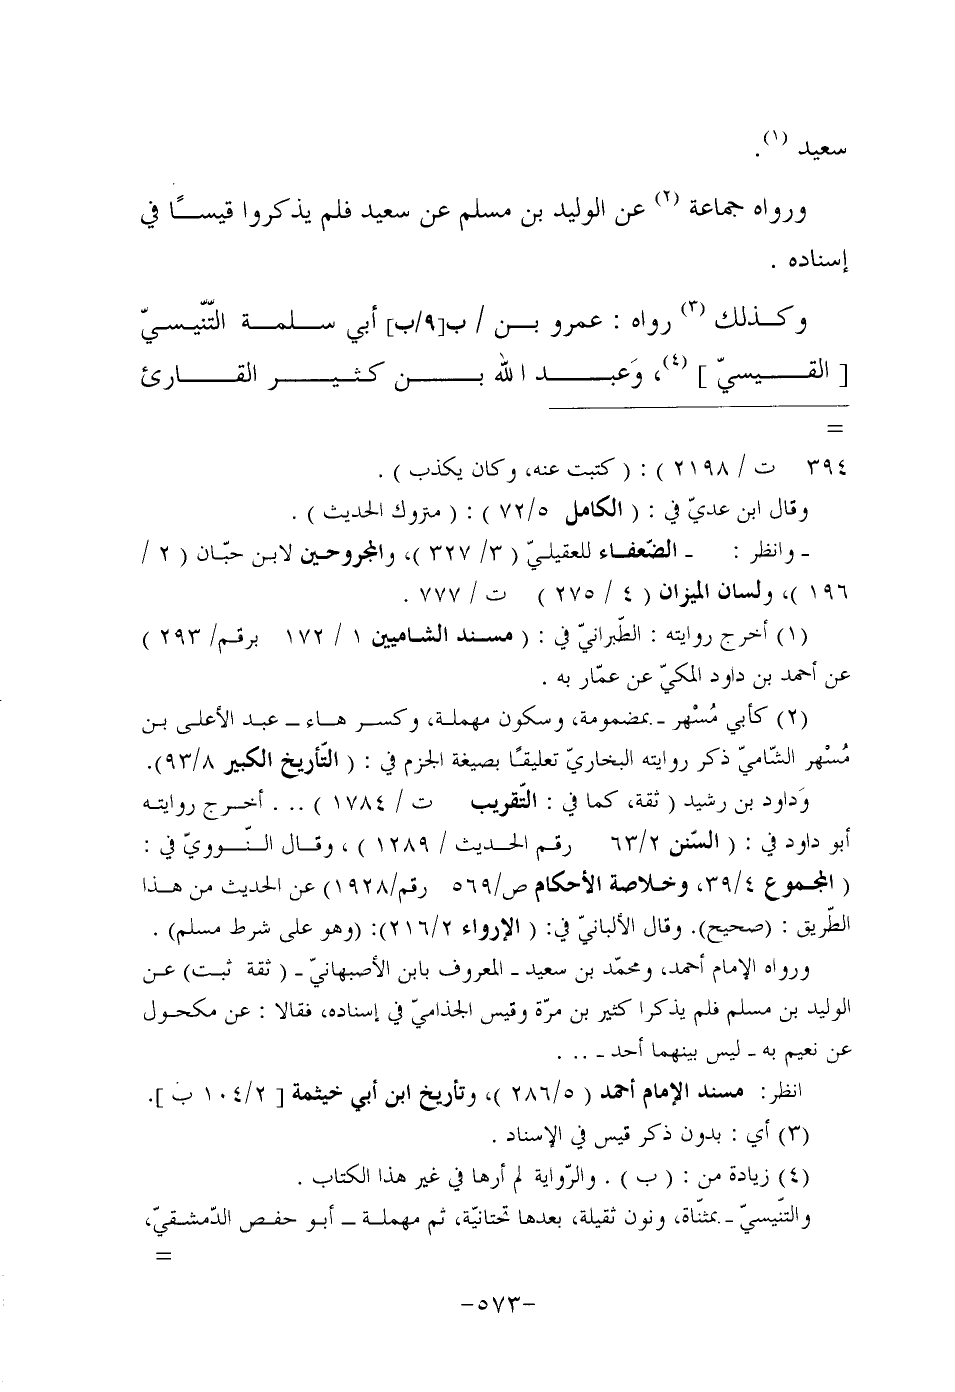 سعيد (١).
ورواه جماعة (٢) عن الوليد بن مسلم عن سعيد فلم يذكروا قيسًا في
إسناده .
وكذلك (٣) رواه : عمرو بن / ب[٩/ب] أبي سلمة التّنّيسيّ
[ القيسيّ ] (٤)، وَعبد الله بن كثير القارئ
=
٣٩٤ ت / ٢١٩٨ ) : ( كتبت عنه، وكان يكذب ) .
وقال ابن عديّ في : ( الكامل ٧٢/٥ ) : ( متروك الحديث ) .
- وانظر : - الضّعفاء للعقيليّ ( ٣/ ٣٢٧ )، والمجروحين لابن حبّان ( ٢ /
١٩٦ )، ولسان الميزان ( ٤ / ٢٧٥ ) ت / ٧٧٧ .
(١) أخرج روايته : الطّبرانيّ في : ( مسند الشاميين ١ / ١٧٢ برقم/ ٢٩٣ )
عن أحمد بن داود المكيّ عن عمّار به .
(٢) كأبي مُسْهر - بمضمومة، وسكون مهملة، وكسر هاء - عبد الأعلى بن
مُسْهر الشّاميّ ذكر روايته البخاريّ تعليقًا بصيغة الجزم في : ( التّأريخ الكبير ٩٣/٨).
وَداود بن رشيد ( ثقة، كما في : التّقريب ت / ١٧٨٤ ) ... أخرج روايته
أبو داود في : ( السّنن ٦٣/٢ رقم الحديث / ١٢٨٩ ) ، وقال النّوويّ في :
( المجموع ٣٩/٤، وخلاصة الأحكام ص/٥٦٩ رقم/١٩٢٨) عن الحديث من هذا
الطّريق : (صحيح). وقال الألبانيّ في: ( الإرواء ٢١٦/٢): (وهو على شرط مسلم) .
ورواه الإمام أحمد، ومحمّد بن سعيد - المعروف بابن الأصبهانيّ - ( ثقة ثبت) عن
الوليد بن مسلم فلم يذكرا كثير بن مرّة وقيس الجذاميّ في إسناده، فقالا : عن مكحول
عن نعيم به - ليس بينهما أحد - ... .
انظر: مسند الإمام أحمد ( ٢٨٦/٥ )، وتأريخ ابن أبي خيثمة [ ١٠٤/٢ ب ].
(٣) أي : بدون ذكر قيس في الإسناد .
(٤) زيادة من : ( ب ) . والرّواية لم أرها في غير هذا الكتاب .
والتّنّيسيّ - بمثنّاة، ونون ثقيلة، بعدها تحتانيّة، ثم مهملة - أبو حفص الدّمشقيّ،
=
-٥٧٣-